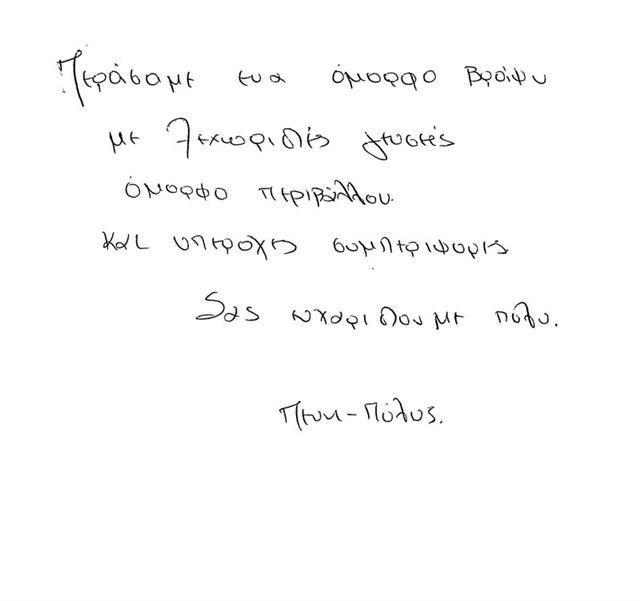 Περάσαμε ένα όμορφο βράδυ
με ξεχωριστές γεύσεις
όμορφο περιβάλλον.
και υπέροχες συμπεριφορές
Σας ευχαριστουμε πολυ.